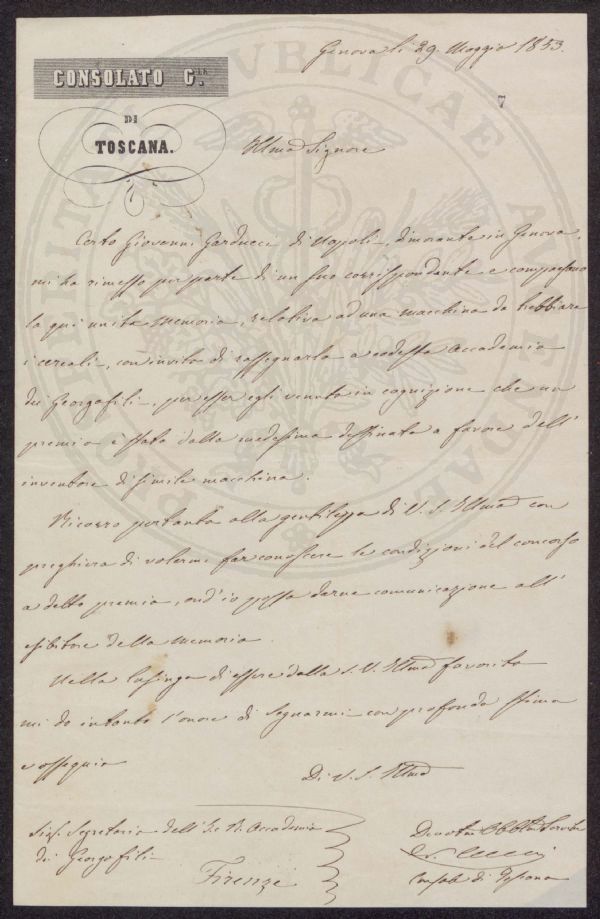 Genova li 29. Maggio 1853.
CONSOLATO G.le
DI
TOSCANA.
7
Illmo Signore
Certo Giovanni Garducci di Napoli, dimorante in Genova,
mi ha rimesso per parte di un suo corrispondente e compaesano
la qui unita Memoria, relativa ad una macchina da trebbiare
i cereali, con invito di rassegnarla a codesta Accademia
dei Georgofili, per esser egli venuto in cognizione che un
premio è stato dalla medesima destinato a favore dell'
inventore di simile macchina.
Ricorro pertanto alla gentilezza di V. S. Illma con
preghiera di volermi far conoscere le condizioni del concorso
a detto premio, ond'io possa darne comunicazione all'
esibitore della Memoria.
Nella lusinga di essere dalla S. V. Illma favorito
mi do intanto l'onore di segnarmi con profonda stima
e ossequio
Di V. S. Illma
Sigr. Segretario dell'I. e R. Accademia
dei Georgofili
Firenze
Devotmo Obblmo Servitore
Console di Toscana
PUBLICAE